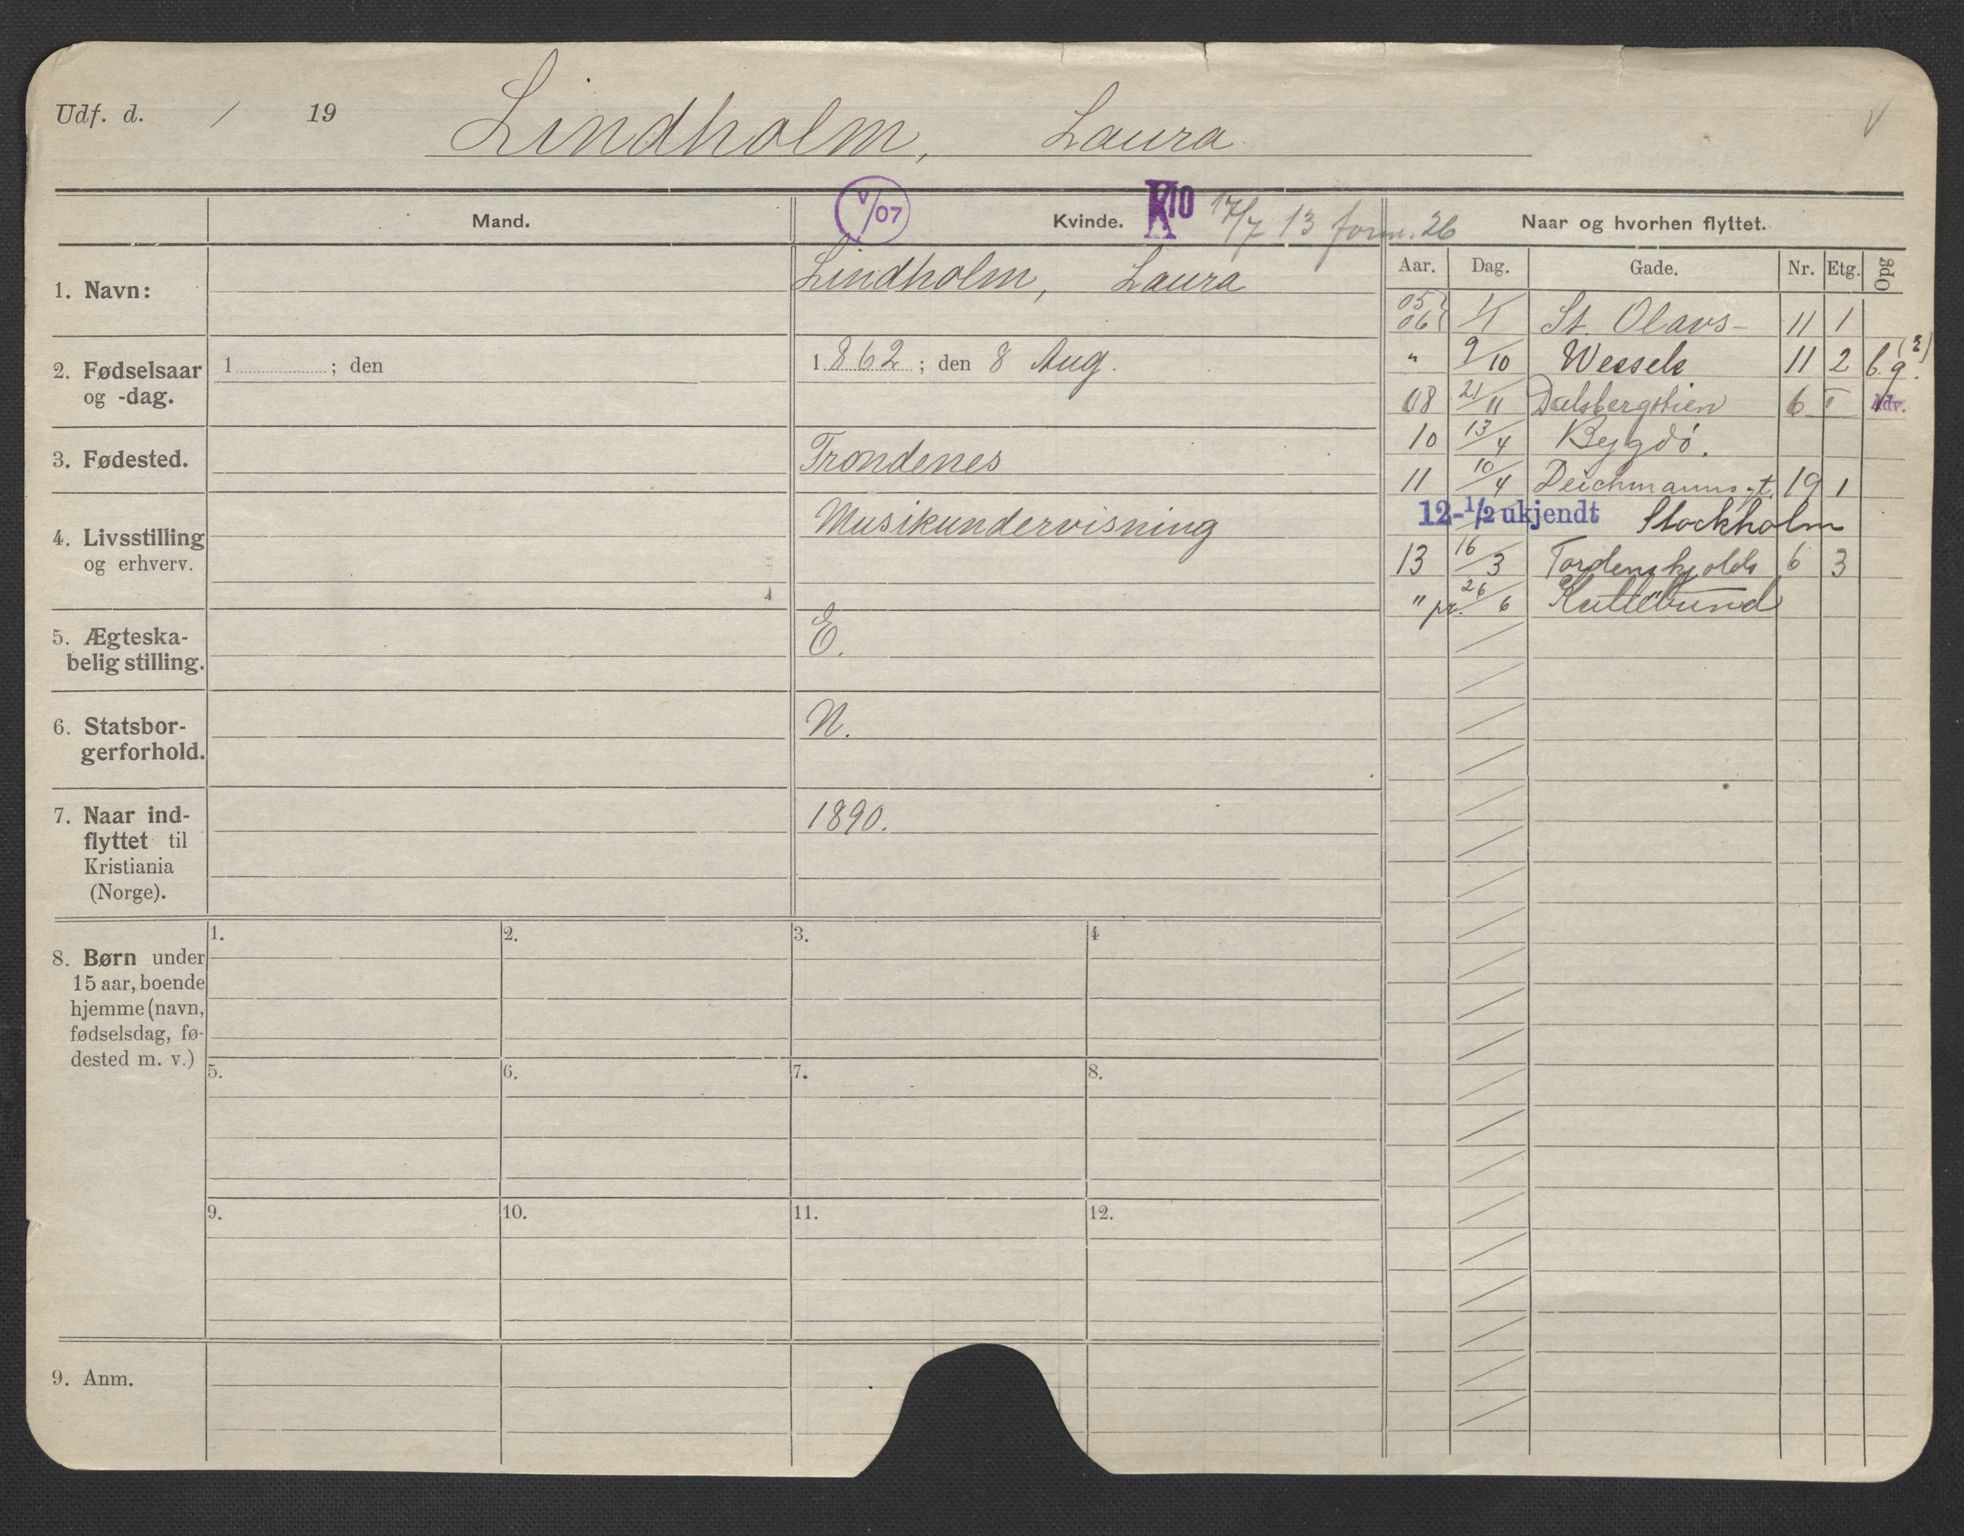 Udf. d. / 19 Lindholm, Laura V
Mand. V/07 Kvinde. K10 17/7 13 form. 26 Naar og hvorhen flyttet.
Aar. Dag. Gade. Nr. Etg. Opg
1. Navn: Lindholm, Laura
2. Fødselsaar og -dag. 1 ; den
1862 ; den 8 Aug.
3. Fødested. Trondenes
4. Livsstilling og erhverv. Musikundervisning
5. Ægteska-
belig stilling. E.
6. Statsbor-
gerforhold. N.
7. Naar ind-
flyttet til
Kristiania
(Norge). 1890.
05 06 1/1 St. Olavs- 11 1
" 9/10 Wessels 11 2 b. g. (2)
08 21/11 Dalsbergstien 6 I Adv.
10 13/4 Bygdö.
11 10/4 Deichmannsgt. 19 1
12-1/2 ukjendt Stockholm
13 16/3 Tordenskjolds 6 3
" pr. 26/6
8. Børn under
15 aar, boende
hjemme (navn,
fødselsdag, fø-
dested m. v.)
1. 2. 3. 4
5. 6. 7. 8.
9. 10. 11. 12.
9. Anm.